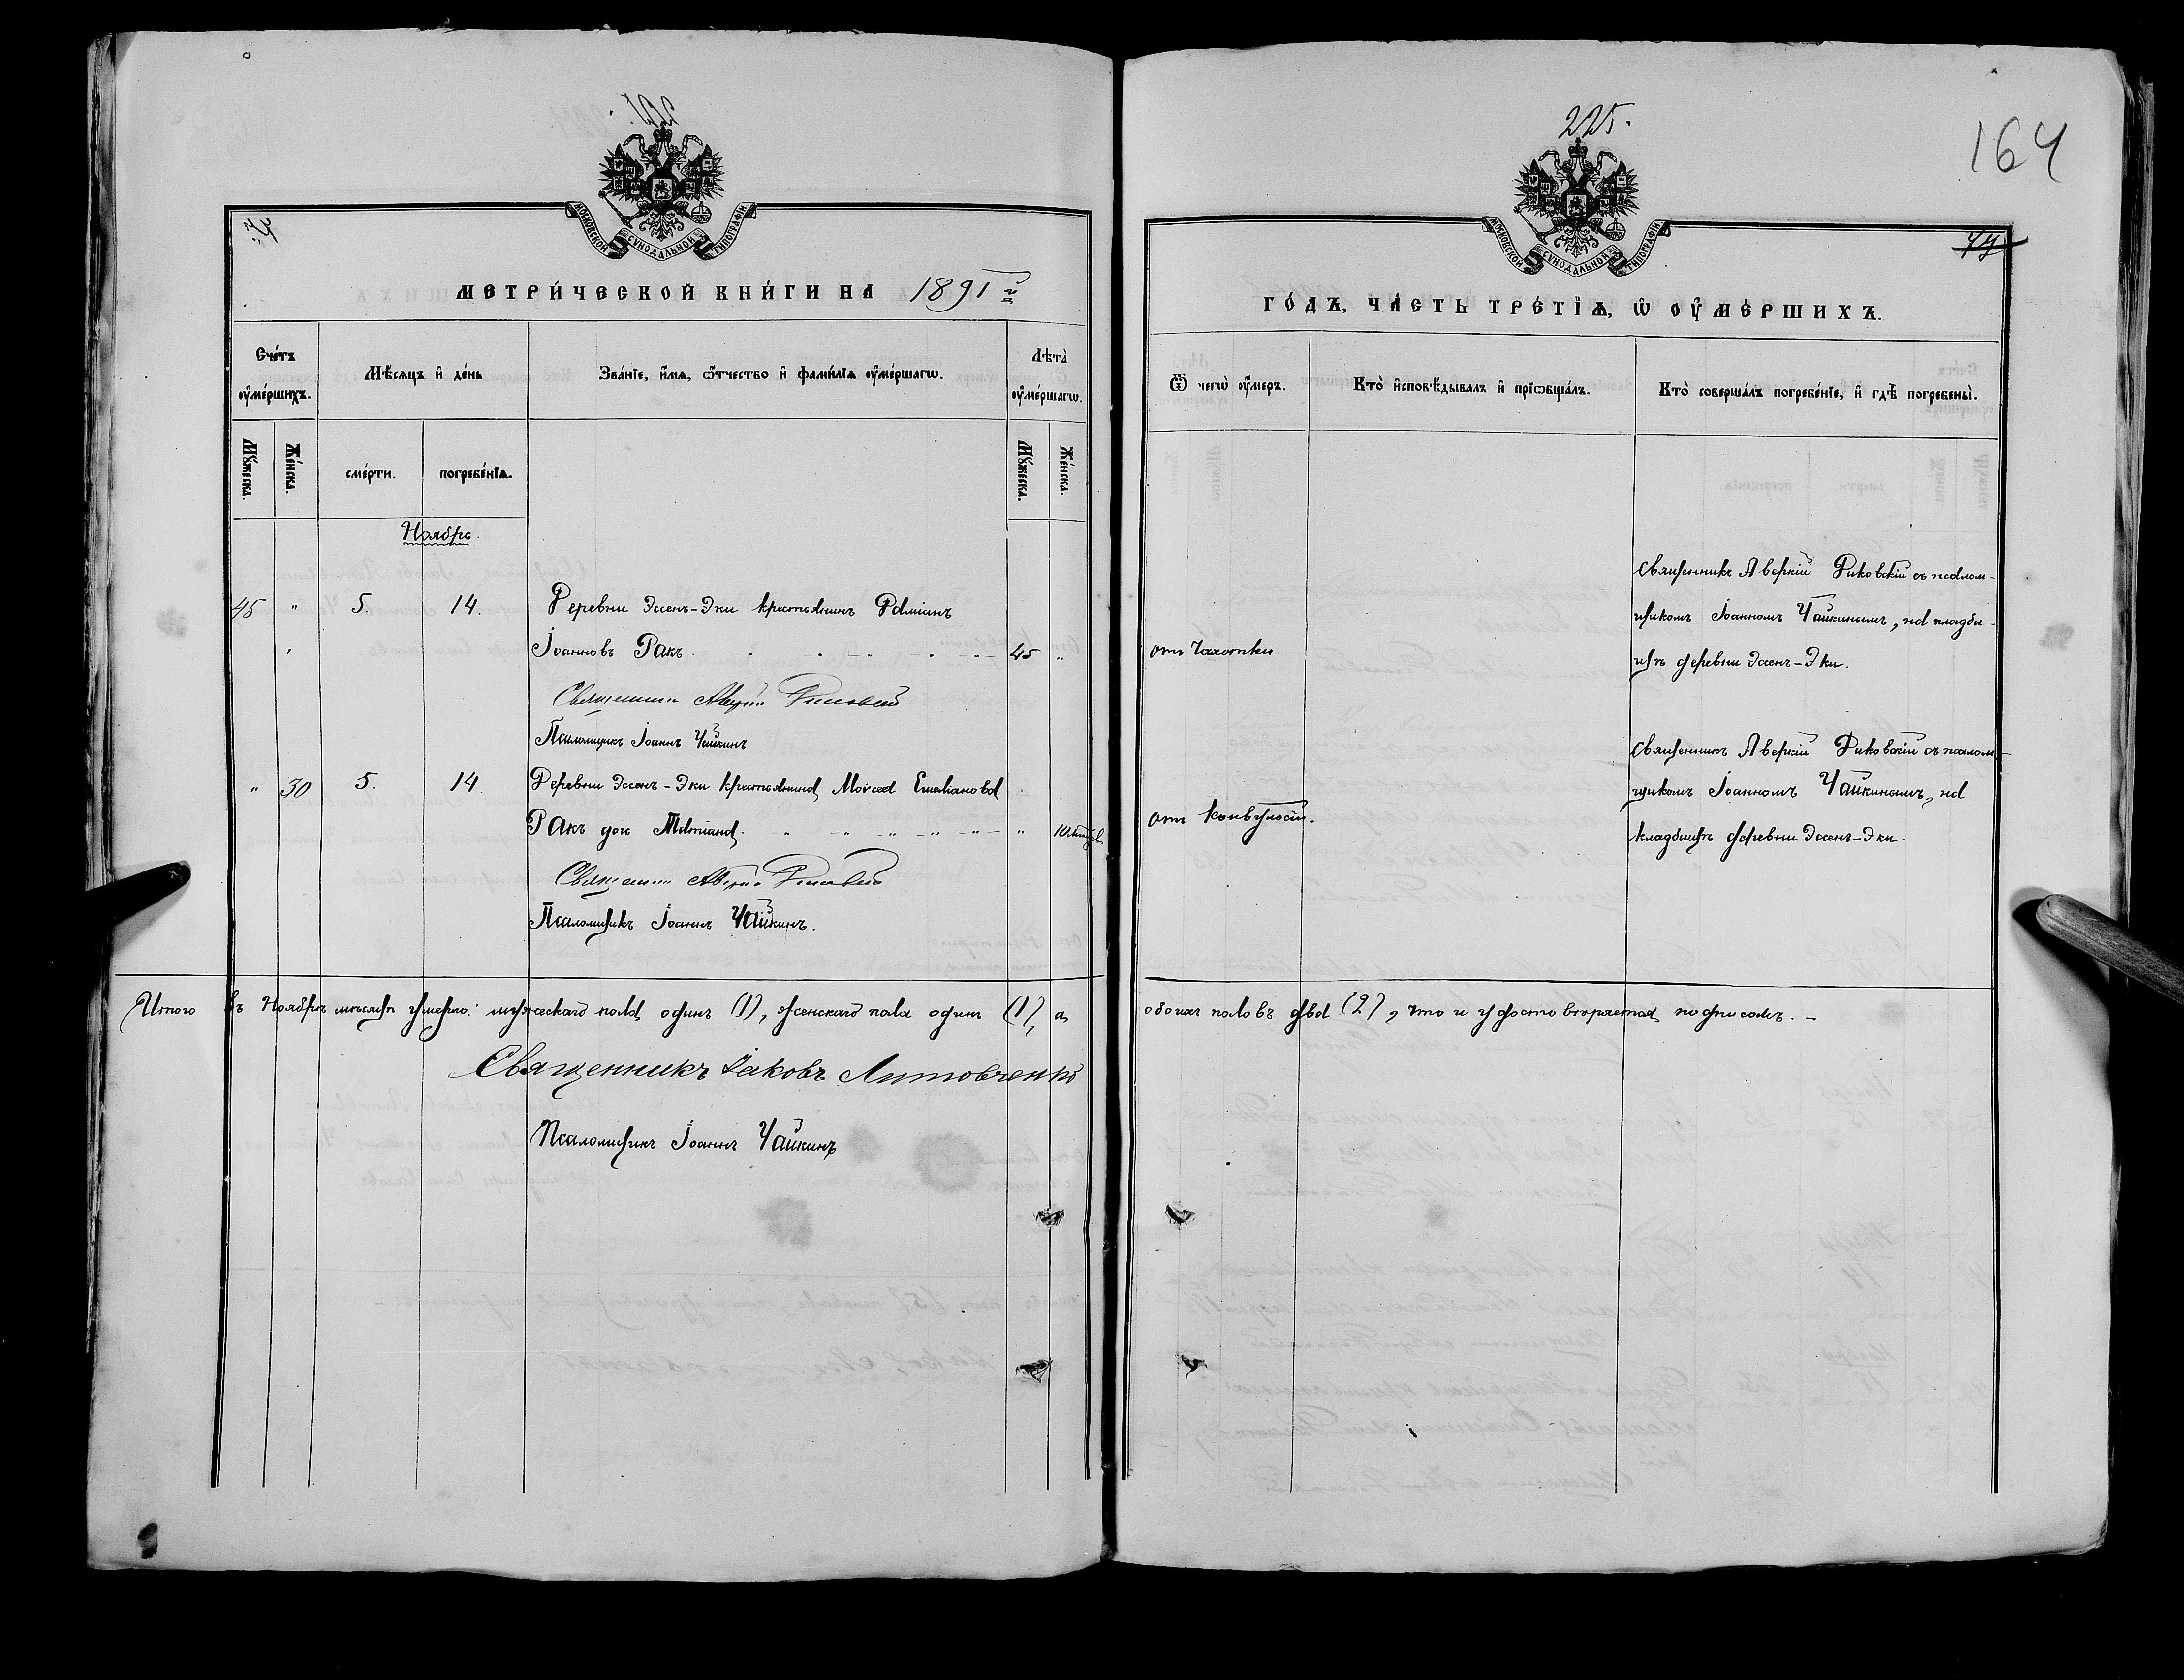 225.
164
МОСКОВСКОЙ СѴНОДАЛЬНОЙ ТИПОГРАФІИ
МЕТРИ́ЧЕСКОЙ КНИ́ГИ НА 1891 й
Сче́тъ ᲂу҆ме́ршихъ.
Мѣ́сяцъ и҆ де́нь
Зва́нїе, и҆́мѧ, ѻ҆́тчество и҆ фами́лїѧ ᲂу҆ме́ршагѡ.
Лѣта̀ ᲂу҆ме́ршагѡ.
Мꙋ́жеска.
Же́нска.
сме́рти.
погребе́нїѧ.
Мꙋ́жеска.
Же́нска.
Ноябрь.
45 " 5. 14. Деревни Эссенъ-Эки крестьянинъ Даміанъ
Іоанновъ Ракъ 45 "
Священникъ Аверкій Диковскій
Псаломщикъ Іоаннъ Чайкинъ
" 30 5. 14. Деревни Эссенъ-Эки крестьянина Моисея Емеліанова
Ракъ дочь " 10
Священникъ Аверкій Диковскій
Псаломщикъ Іоаннъ Чайкинъ.
Итого въ Ноябрѣ мѣсяцѣ умерло: мужескаго пола одинъ (1), женскаго пола одинъ (1), а
Священникъ Іаковъ Литовченко
Псаломщикъ Іоаннъ Чайкинъ
МОСКОВСКОЙ СѴНОДАЛЬНОЙ ТИПОГРАФІИ
ГО́ДЪ, ЧА́СТЬ ТРЕ́ТЇѦ, Ѡ҆ ОУ҆МЕ́РШИХЪ.
Ѿ чегѡ̀ ᲂу҆́меръ.
Кто̀ и҆сповѣ́дывалъ и҆ прїѡбща́лъ.
Кто̀ соверша́лъ погребе́нїе, и҆ гдѣ̀ погребены̀.
отъ чахотки
Священникъ Аверкій Диковскій съ псалом-
щикомъ Іоанномъ Чайкинымъ, на кладби-
щѣ деревни Эссенъ-Эки.
отъ конвульсіи.
Священникъ Аверкій Диковскій съ псалом-
щикомъ Іоанномъ Чайкинымъ, на
кладбищѣ деревни Эссенъ-Эки.
обоихъ половъ два (2), что и удостовѣряемъ подписомъ. —